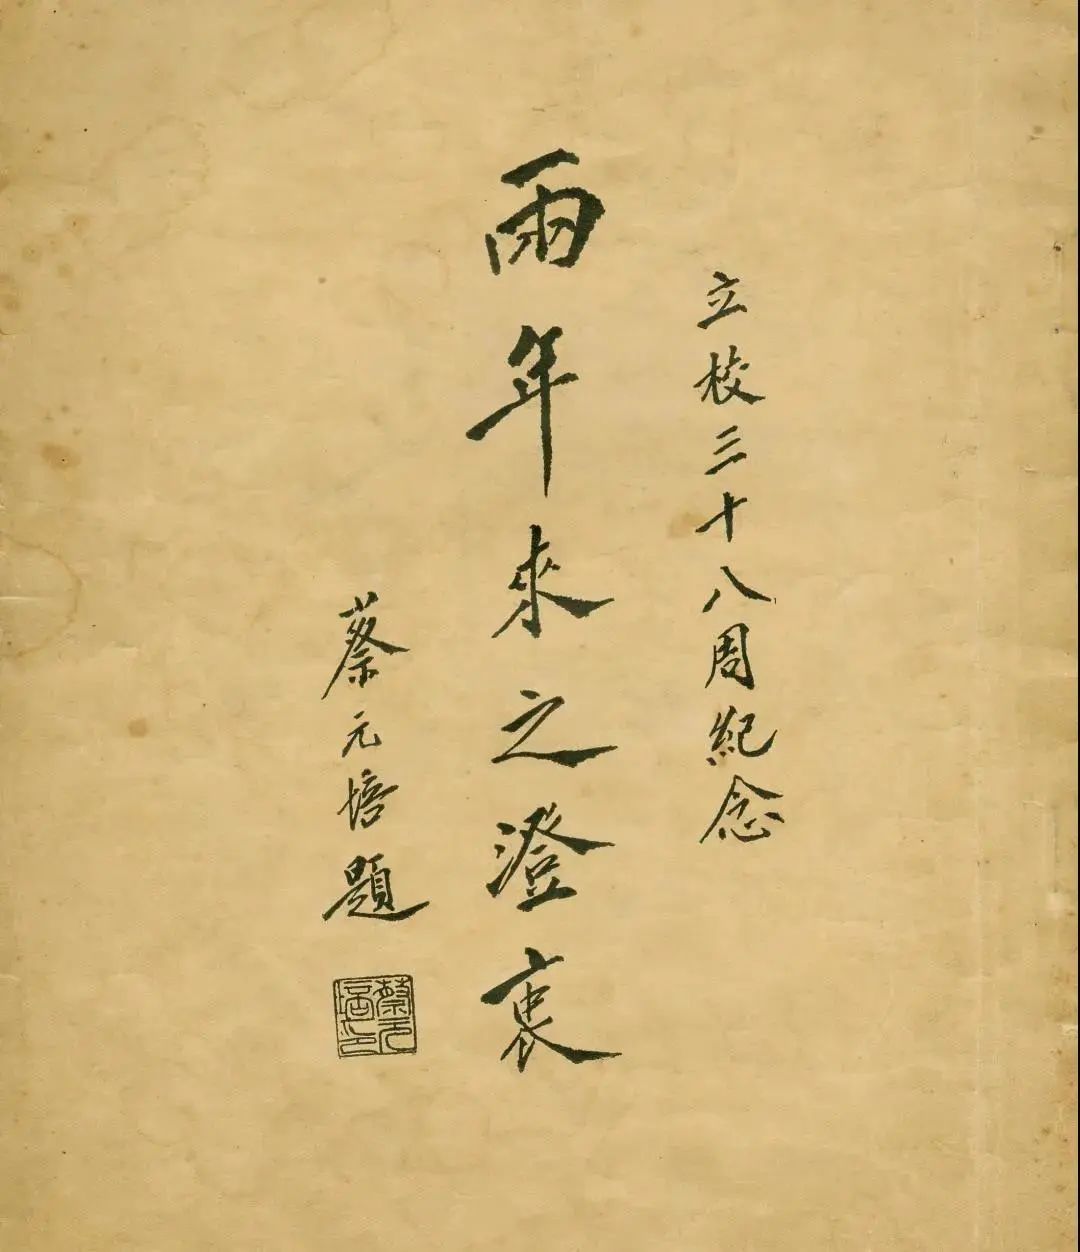 立校三十八周紀念
兩年來之澄衷
蔡元培題
蔡元培印